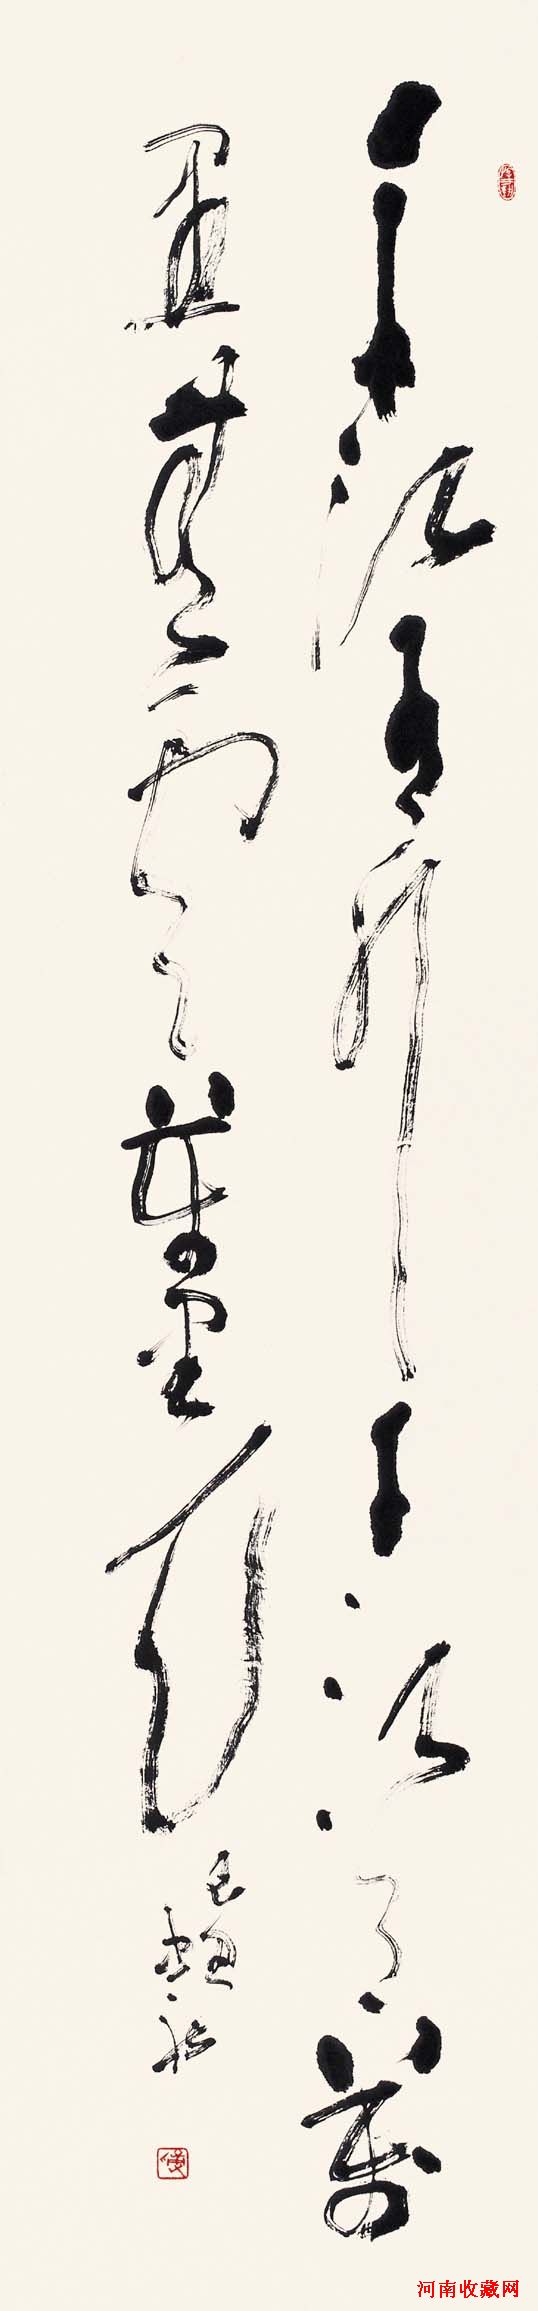 千江有水千江月萬
里無雲萬里天
河南收藏网